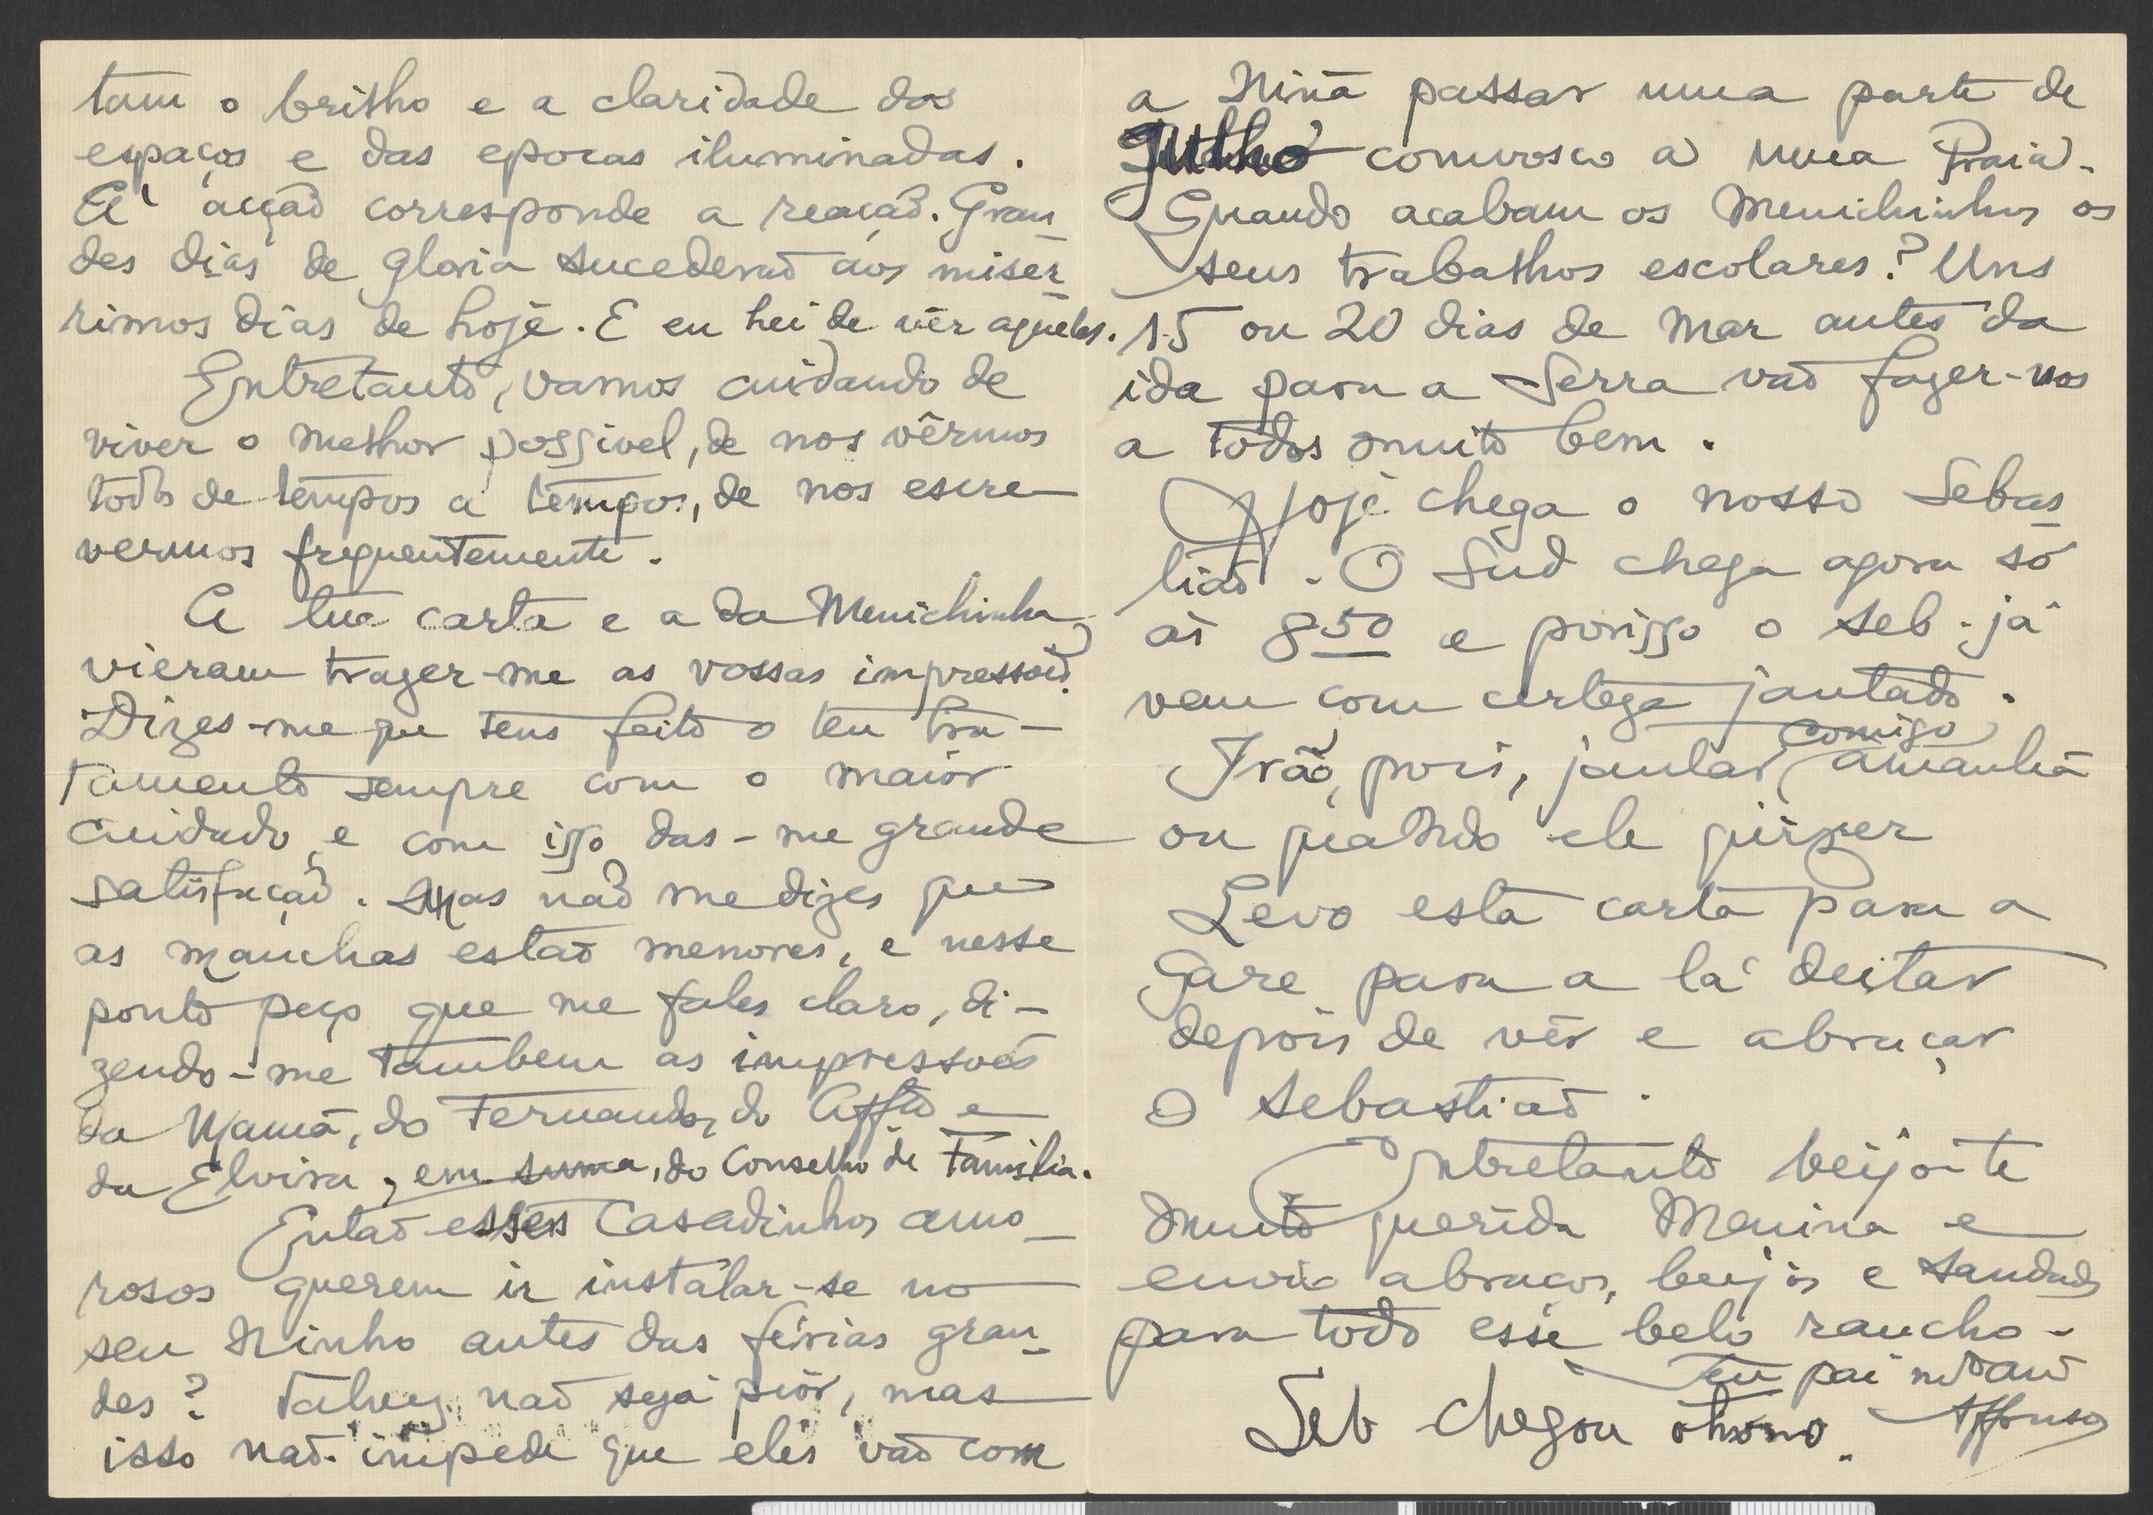 tam o brilho e a claridade dos
espaços e das epocas iluminadas.
A' acção corresponde a reacção. Gran_
des dias de gloria sucederão aos misér_
rimos dias de hoje. E eu hei de vêr aqueles.
Entretanto, vamos cuidando de
viver o melhor possivel, de nos vêrmos
todos de tempos a tempos, de nos escre-
vermos frequentemente.
A tua carta e a da Menichinha
vieram trazer-me as vossas impressões.
Dizes-me que tens feito o teu tra-
tamento sempre com o maior
cuidado, e com isso das-me grande
satisfação. Mas não me dizes que
as manchas estão menores, e nesse
ponto peço que me fales claro, di-
zendo-me tambem as impressões
da Mamã, do Fernando, do Affº e
da Elvira, em suma, do Conselho de Familia.
Então esses Casadinhos amo_
rosos querem ir instalar-se no
seu Ninho antes das ferias gran_
des? Talvez não seja pior, mas
isso não impede que eles vão com
a Ninã passar uma parte de
Julho comvosco a uma Praia.
Quando acabam os Menichinhos os
seus trabalhos escolares? Uns
15 ou 20 dias de Mar antes da
ida para a Serra vão fazer-nos
a todos muito bem.
Hoje chega o nosso Sebas_
tião. O Sud chega agora só
ás 8 50 e porisso o Seb. já
vem com certeza jantado.
Irão, pois, jantar comigo amanhã
ou quando ele quizer
Levo esta carta para a
Gare para a lá deitar
depois de vêr e abraçar
o Sebastião.
Entretanto beijo-te
muito querida Menina e
envio abraços, beijos e saudades
para todo esse belo rancho.
Teu pai m.to am.o
Affonso
Seb chegou otimo.